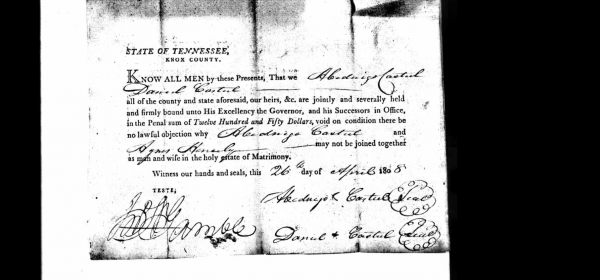 STATE OF TENNESSEE,
KNOX COUNTY.
KNOW ALL MEN by these Presents, That we Abednigo Casteel
Daniel Casteel
all of the county and state aforesaid, our heirs, &c. are jointly and severally held
and firmly bound unto His Excellency the Governor, and his Successors in Office,
in the Penal sum of Twelve Hundred and Fifty Dollars, void on condition there be
no lawful objection why Abednigo Casteel and
Agnes may not be joined together
as man and wife in the holy estate of Matrimony.
Witness our hands and seals, this 26th day of April 1808
TESTE,
Abednigo Casteel Seal
Gamble
Daniel + Casteel Seal